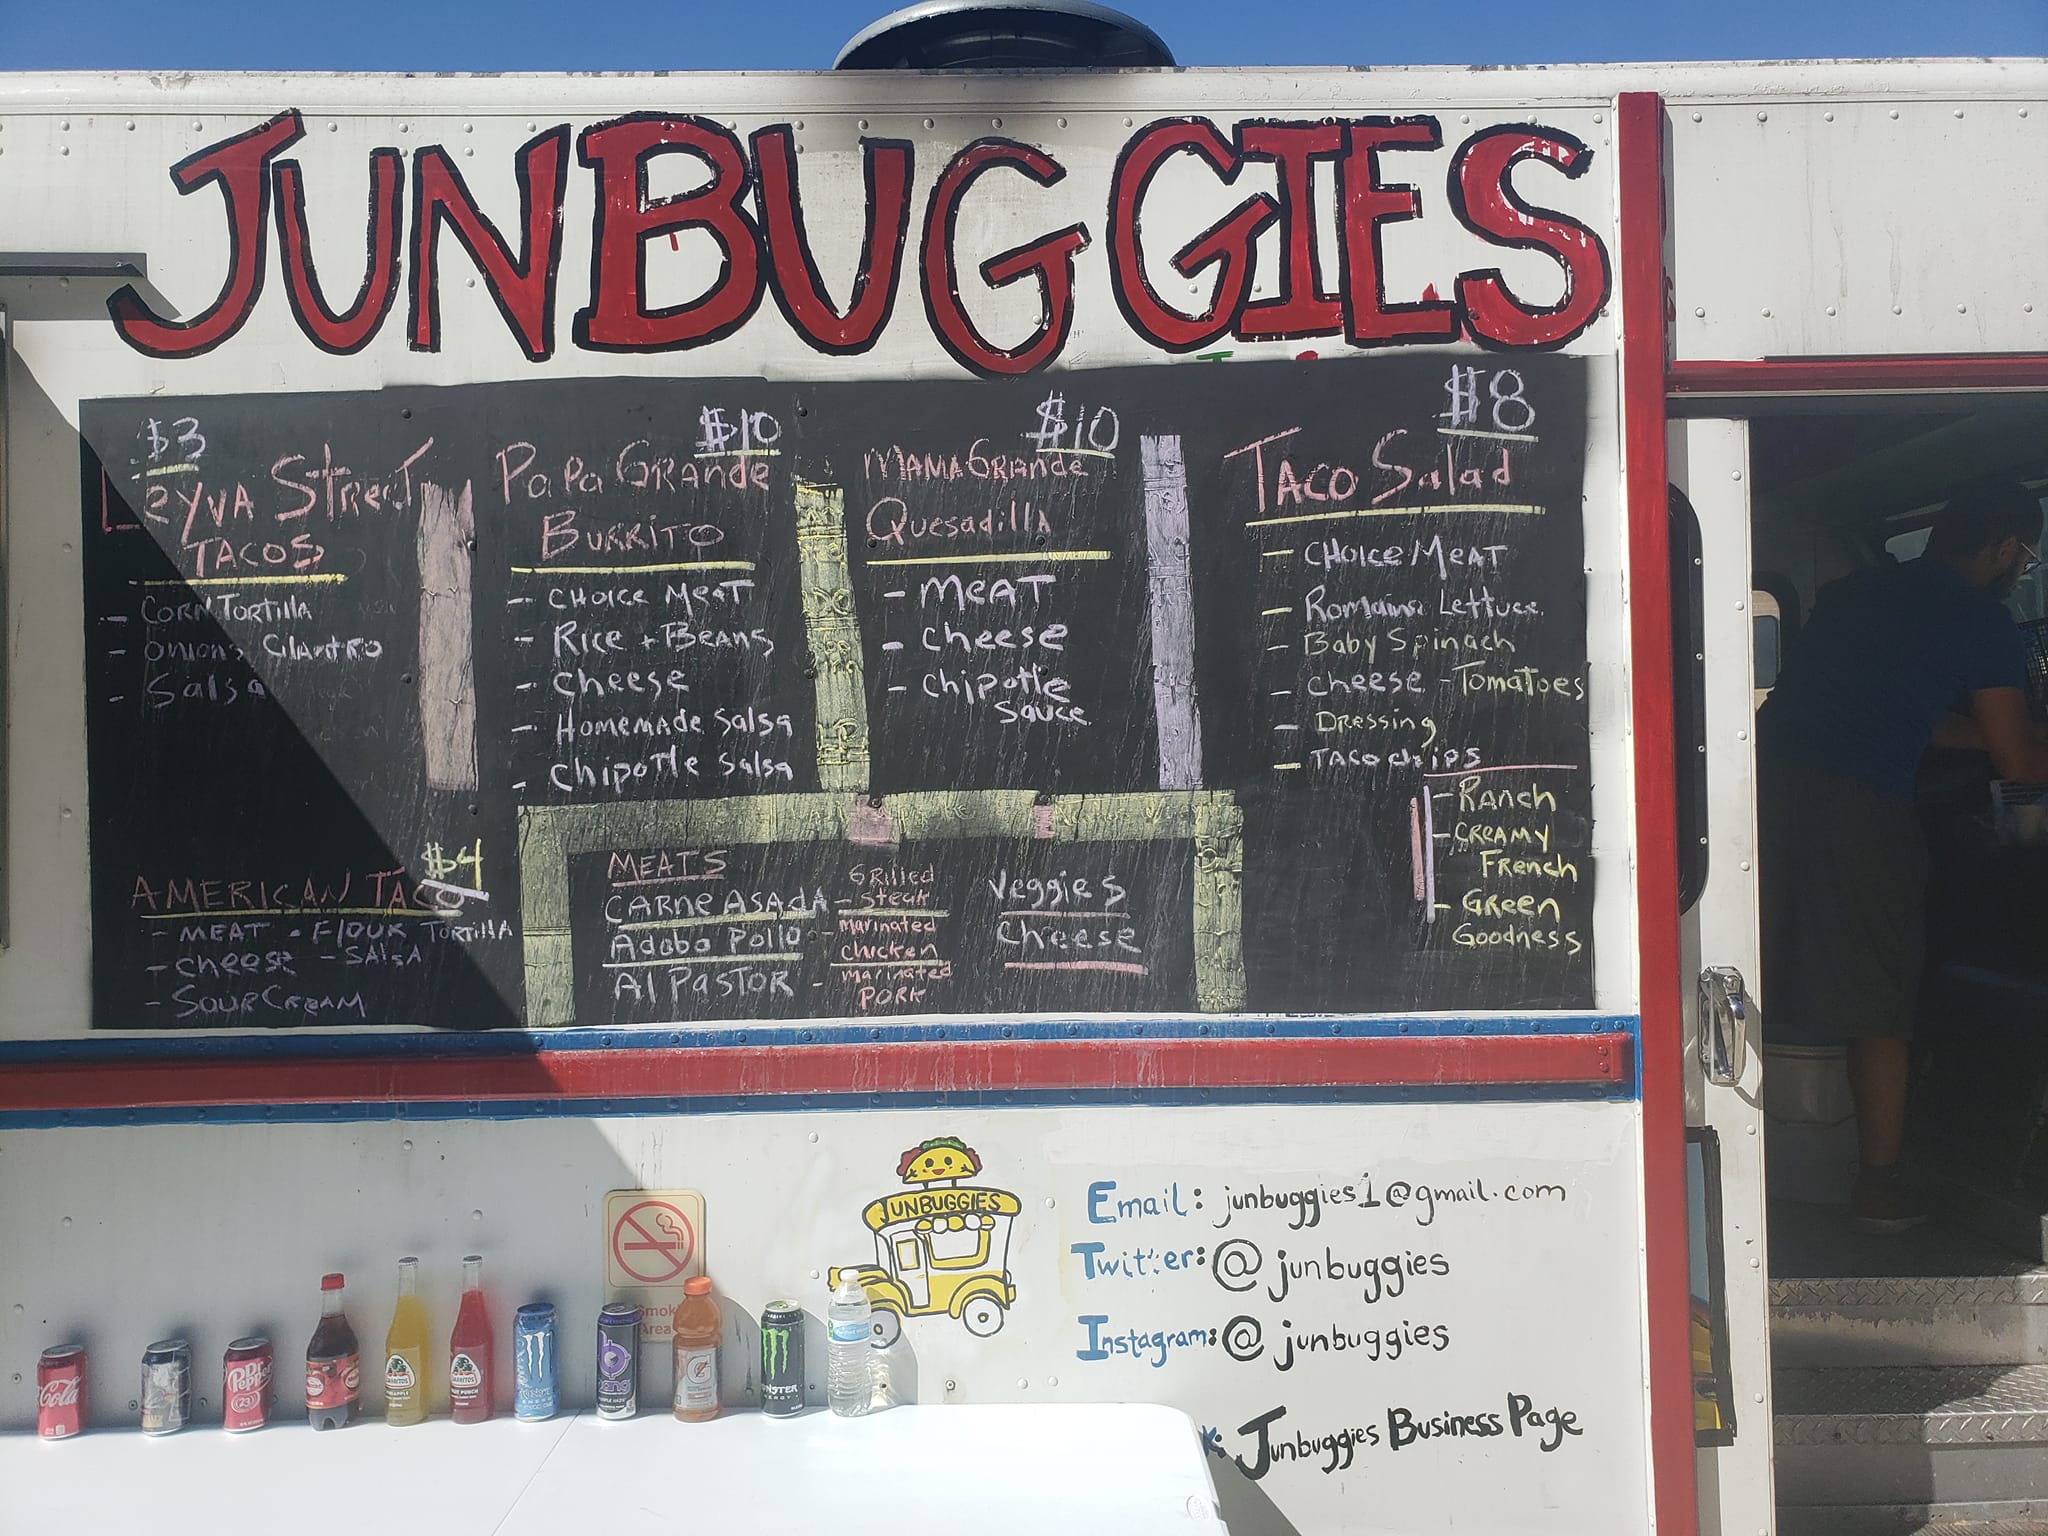 JUNBUGGIES
$3
Leyva Street
TACOS
- CORN TORTILLA
- Onions Cilantro
- Salsa
$10
PaPa GRANDE
BURRITO
- CHOICE MEAT
- Rice + Beans
- cheese
- Homemade Salsa
- Chipotle Salsa
$10
MAMA GRANDE
Quesadilla
- MEAT
- cheese
- chipotle
sauce
$8
TACO Salad
- CHOICE/MEAT
- Romaine Lettuce
- Baby Spinach
- cheese - TomaToes
- Dressing
- TACO chips
- Ranch
- CREAMY
French
- Green
Goodness
$4
AMERICAN TACO
- MEAT • FlOUR TORTIllA
- cheese - SALSA
- SOUR CREAM
MEATS
CARNe ASADA - GRilled Steak
Adobo Pollo - marinated chicken
Al PASTOR - marinated PORK
Veggies
Cheese
JUNBUGGIES
Email: junbuggies1@gmail.com
Twitter: @junbuggies
Instagram: @junbuggies
k: Junbuggies Business Page
Smok
Area
Cola
Dr Pepper
23
JARRITOS
JARRITOS
bang
MONSTER
ENERGY